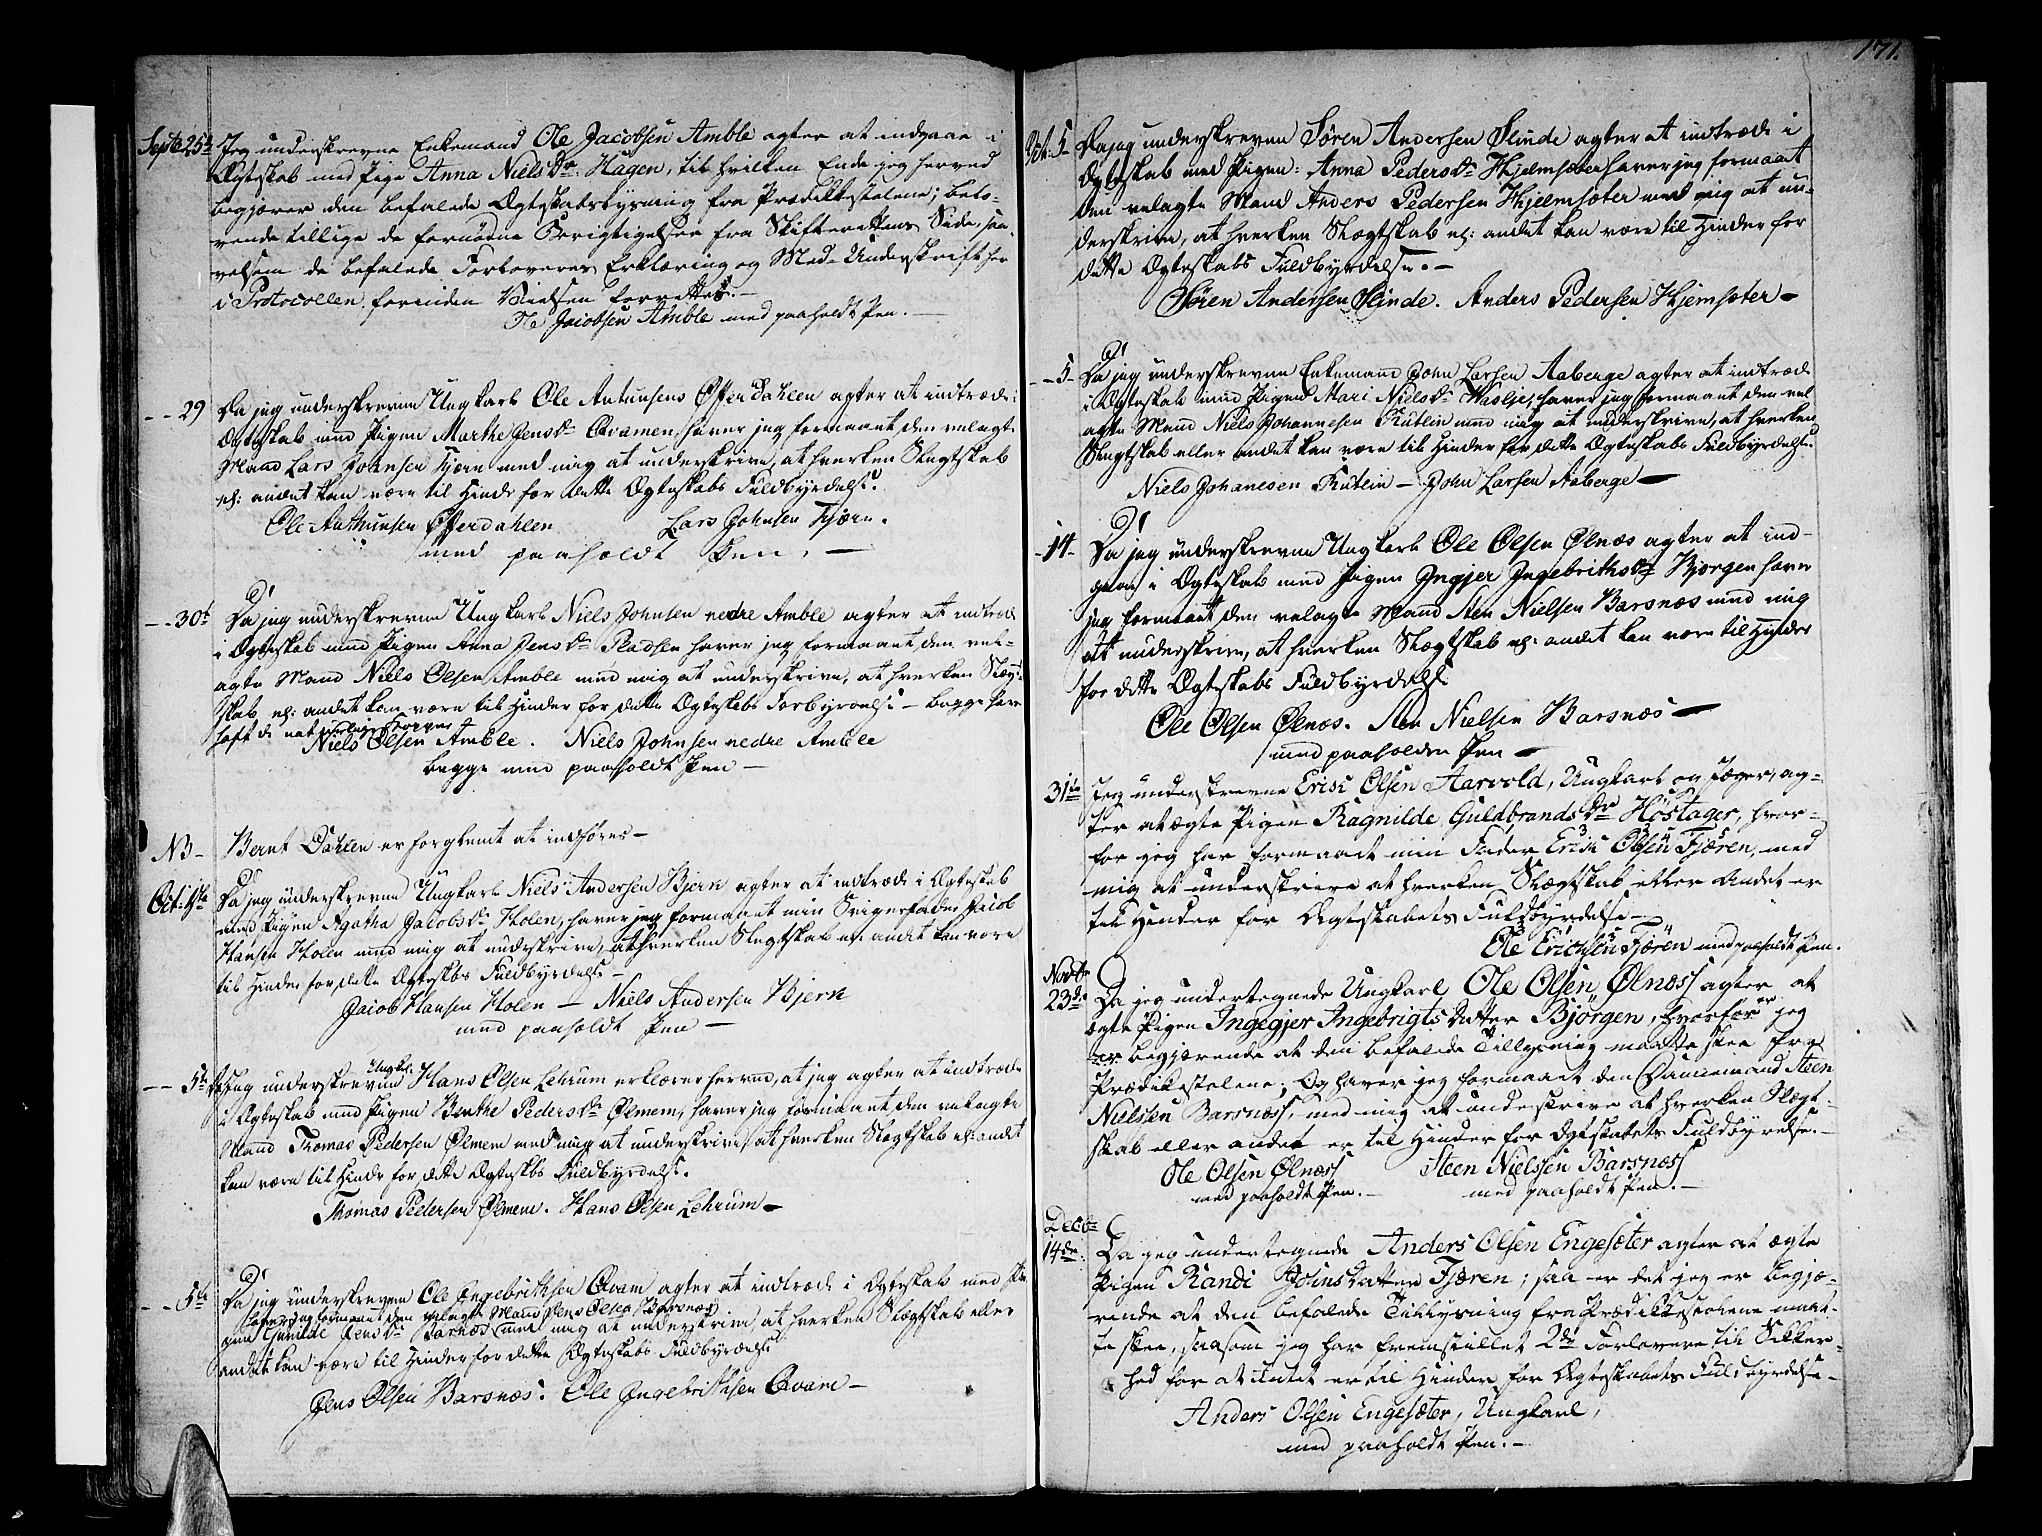 Septb 25de Jeg underskrevne Enkemand Ole Jacobsen Amble agter at indgaae i
Ægteskab med Pige Anna NielsDr Hagen, til hvilken Ende jeg herved
begjærer den befalede Ægteskabslysning fra Prædikkestolene; belo-
vende tillige de fornødne Berigtigelser fra Skifterettens Side, saa-
velsom de befalede Forloveres Erklæring og Med-Underskrift her
i Protocollen forinden Vielsen forrettes.-
Ole Jacobsen Amble med paaholdt Pen.
- - 29 Da jeg underskrevne Ungkarl Ole Antunsens Øfferdahlen agter at indtræde i
Ægteskab med Pigen Marthe JensDr Qvamen, haver jeg formaaet den velagte
Mand Lars Johnsen Kjørn med mig at underskrive, at hverken Slegtskab
el: andet kan være til Hinder for dette Ægteskabs Fuldbyrdelse.
Ole Anthunsen Øfferdahlen Lars Johnsen Kjørn.
med paaholdt Pen. -
- - 30t Da jeg underskrevne Ungkarl Niels Johnsen nedre Amble agter at indtræde
i Ægteskab med Pigen Anna JensDr Pladsen haver jeg formaaet den vel-
agte Mand Niels Olsen Amble med mig at underskrive, at hverken Slægt-
skab el: andet kan være til Hinder for dette Ægteskabs Forbyrdelse - begge have
haft de naturlige Kopper
Niels Olsen Amble. Niels Johnsen nedre Amble
begge med paaholdt Pen -
NB - Bernt Dahlen er forglemt at indføres -
Oct: 1ste Da jeg underskrevne Ungkarl Niels Andersen Bjerk agter at indtræde i Ægteskab
med Pigen Agatha JacobsDr Holen, haver jeg formaaet min Svigerfader Jacob
Hansen Holen med mig at underskrive, at hverken Slegtskab el: andet kan være
til Hinder for dette Ægteskabs Fuldbyrdelse -
Jacob Hansen Holen - Niels Andersen Bjerk
med paaholdt Pen -
- - 5te Jeg underskrevne Ungkl. Hans Olsen Lehrum erklærer herved, at jeg agter at indtræde
i Ægteskab med Pigen Berthe PedersDr Ølmem, haver jeg formaaet den velagte
Mand Thomas Pedersen Ølmem med mig at underskrive, at hverken Slegtskab el: andet
kan være til Hinder for dette Ægteskabs Fuldbyrdelse.
Thomas Pedersen Ølmem. Hans Olsen Lehrum -
- - 5te Da jeg underskreven Ole Engebrethsen Qvam agter at indtræde i Ægteskab med Pi-
haver jeg formaaet den velagte Mand Jens Olsen Barsnæs
gen Gunilde JensDr Barnæs med mig at underskrive, at hverken Slægtskab eller
andet kan være til Hinder for dette Ægteskabs Fuldbyrdelse
Jens Olsen Barsnæs. Ole Ingebrithsen Qvam -
171.
Oct: 5 Da jeg underskreven Søren Andersen Slinde agter at indtræde i
Ægteskab med Pigen: Anna PedersDr Hjelmsæter haver jeg formaaet
den velagte Mand Anders Pedersen Hjelmsæter med mig at un-
derskrive, at hverken Slægtskab el: andet kan være til Hinder for
dette Ægteskabs Fuldbyrdelse. -
Søren Andersen Slinde. Anders Pedersen Hjemsæter -
- - 5 - Da jeg underskrevne Enkemand John Larsen Aaberge agter at indtræde
i Ægteskab med Pigen Mari NielsDr Haslje, haver jeg formaaet den vel
agte Mand Niels Johannesen Rutlin med mig at underskrive, at hverken
Slegtskab eller andet kan være til Hinder for dette Ægteskabs Fuldbyrdelse.
Niels Johanesen Rutlin - John Larsen Aaberge -
- 14 - Da jeg underskrevne Ungkarl Ole Olsen Ølnæs agter at ind-
gaae i Ægteskab med Pigen Ingjer IngebrithsDr Bjørgen haver
jeg formaaet den velagte Mand Sten Nielsen Barsnæs med mig
at underskrive, at hverken Slægtskab el: andet kan være til Hinder
for dette Ægteskabs Fuldbyrdelse
Ole Olsen Ølnæs. Sten Nielsen Barsnæs -
med paaholden Pen -
31te Jeg underskrevne Erich Olsen Aarvold, Ungkarl og Jæger, ag-
ter at ægte Pigen Ragnilde GuldbrandsDtr Høstager, hvor-
for jeg har formaaet min Fader Erich Olsen Fjæren, med
mig at underskrive at hverken Slægtskab eller Andet er
til Hinder for Ægteskabets Fuldbyrdelse -
Ole Erichsen Fjæren med paaholdt Pen.
Novbr 23de Da jeg undertegnede Ungkarl Ole Olsen Ølnæss agter at
ægte Pigen Ingegjer IngebrigtsDatter Bjørgen, hvorfor er jeg
er begjærende at den befalede Tillysning maatte skee fra
Prædikestolene; Og haver jeg formaaet den Dannemand Steen
Nielssen Barsnæss, med mig at underskrive at hverken Slægt-
skab eller andet er til Hinder for Ægteskabets Fuldbyrdelse. -
Ole Olsen Ølnæss Steen Nielssen Barsnæss
med paaholdt Pen. - med paaholdt Pen. -
Decbr 14de. Da jeg undertegnede Anders Olsen Engesæter agter at ægte
Pigen Randi JohnsDatter Fjæren; saa er det jeg er begjæ-
rende at den befalede Tillysning fra Prædikkestolene maat-
te skee, saasom jeg har fremstillet 2de Forlovere til Sikker-
hed for at Intet er til Hinder for Ægteskabets Fuldbyrdelse. -
Anders Olsen Engesæter, Ungkarl,
med paaholdt Pen. -